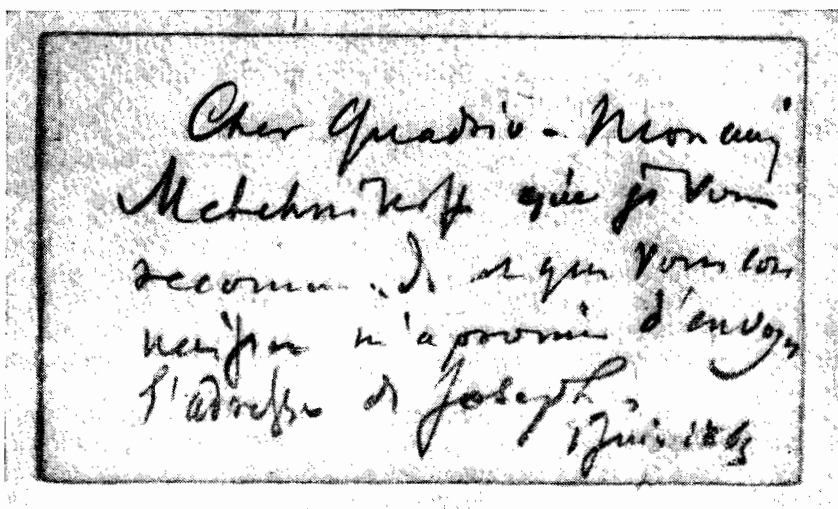 Cher Quadrio - Mon ami
Metchnikoff que je vous
recommande et que vous con
naissez m'a promis d'envoyer
l'adresse de Joseph.
1 Juin 1863